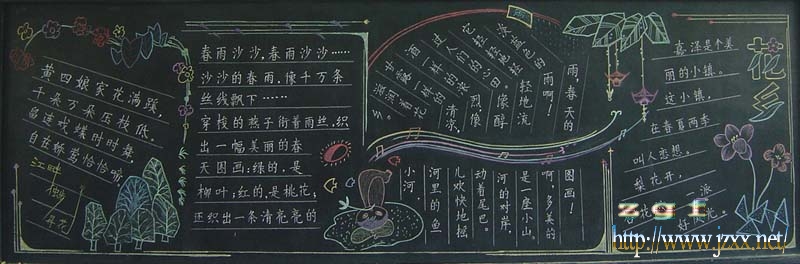 黄四娘家花满蹊,
千朵万朵压枝低。
留连戏蝶时时舞,
自在娇莺恰恰啼。
江畔
独步
寻花
春雨沙沙,春雨沙沙……
沙沙的春雨,像千万条
丝线飘下……
穿梭的燕子衔着雨丝,织
出一幅美丽的春
天图画:绿的,是
柳叶;红的,是桃花;
还织出一条清亮亮的
小河,
河里的鱼
儿欢快地摇
动着尾巴。
河的对岸,
是一座小山。
啊,多美的
图画!
雨,春天的
雨啊!
淡蓝色的
轻轻地
它
过人们的心田。
轻地流
像醇
酒一样的浓
烈,像
甘露一样的
清凉,
滋润着花
乡。
花乡
喜泽是个美
丽的小镇。
这小镇,
在春夏两季
叫人恋想。
梨花开,
一派
好风光。
zgf
http://www.jzxx.net/